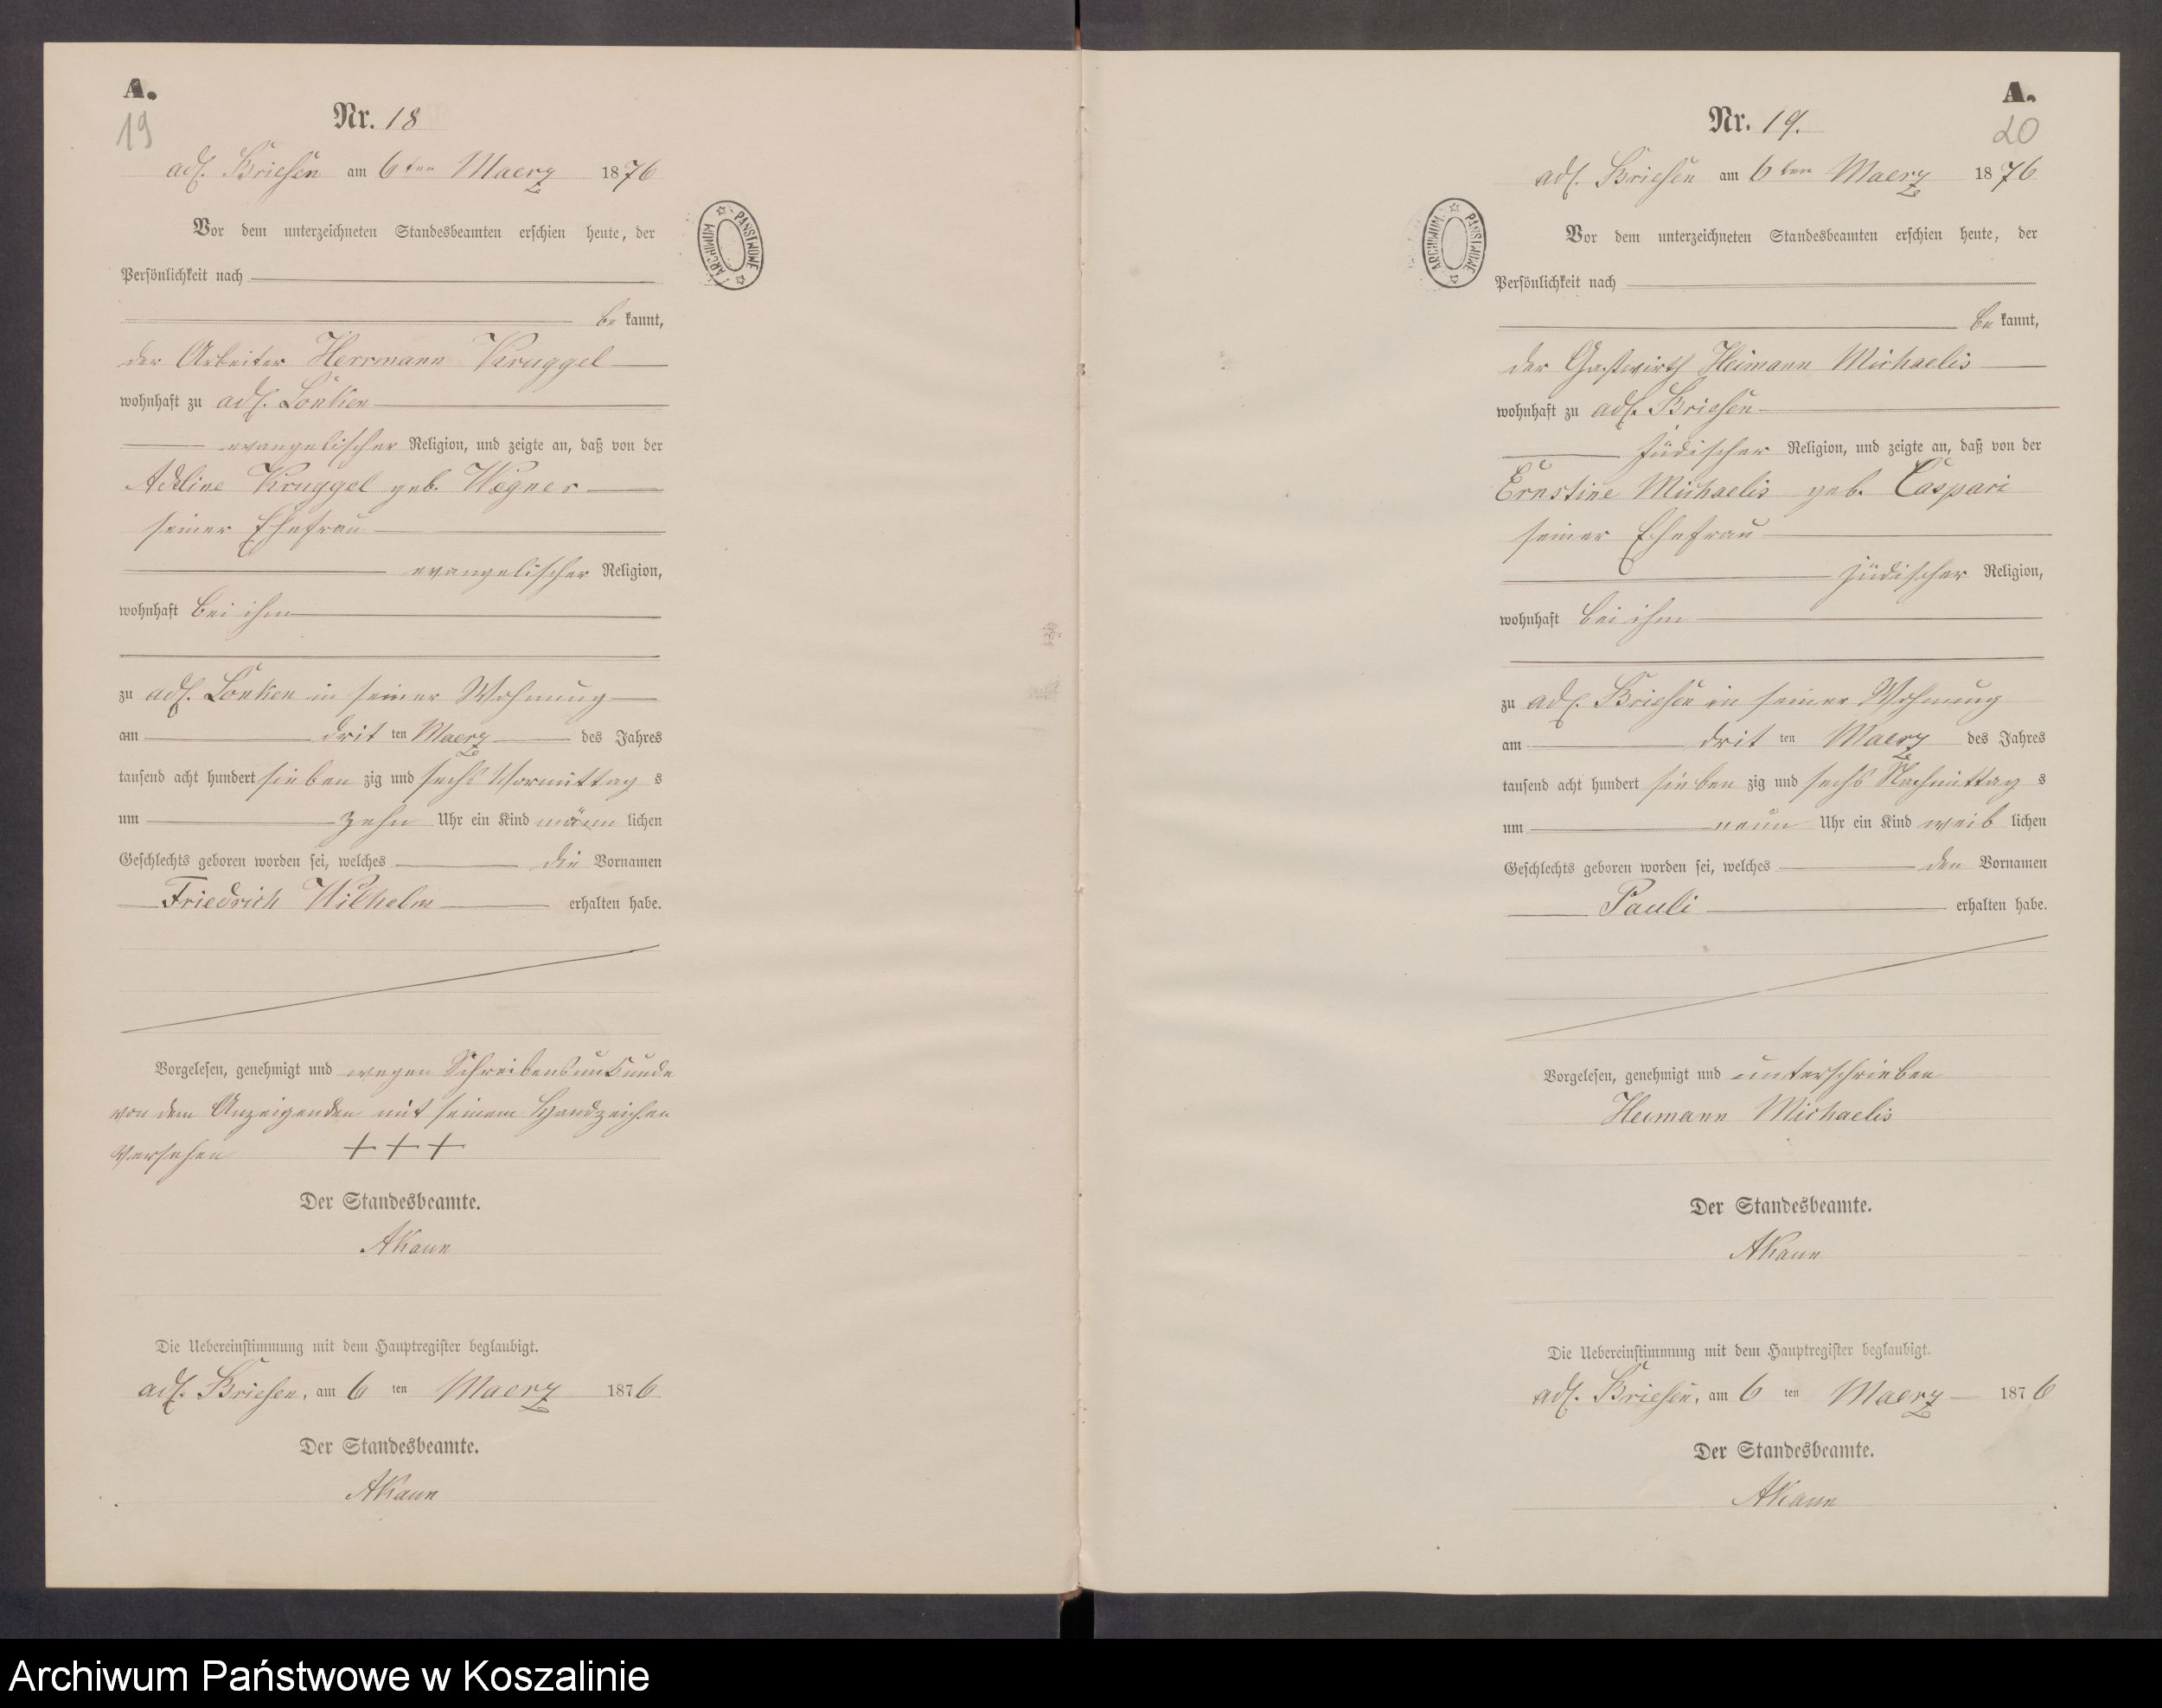 A.
19
Nr. 18
adl. Briesen am 6ten Maerz 1876
Vor dem unterzeichneten Standesbeamten erschien heute, der
Persönlichkeit nach
be kannt,
der Arbeiter Herrmann Kruggel
wohnhaft zu adl. Lonken
evangelischer Religion, und zeigte an, daß von der
Adeline Kruggel geb. Wegner
seiner Ehefrau
evangelischer Religion,
wohnhaft bei ihm
zu adl. Lonken in seiner Wohnung
am drit ten Maerz des Jahres
tausend acht hundert sieben zig und sechs Vormittag s
um zehn Uhr ein Kind männ lichen
Geschlechts geboren worden sei, welches die Vornamen
Friedrich Wilhelm erhalten habe.
Vorgelesen, genehmigt und wegen Schreibensunkunde
von dem Anzeigenden mit seinem Handzeichen
versehen + + +
Der Standesbeamte.
AKaun
Die Uebereinstimmung mit dem Hauptregister beglaubigt.
adl. Briesen, am 6 ten Maerz 1876
Der Standesbeamte.
AKaun
ARCHIWUM PAŃSTWOWE
A.
20
Nr. 19.
adl. Briesen am 6ten Maerz 1876
Vor dem unterzeichneten Standesbeamten erschien heute, der
Persönlichkeit nach
be kannt,
der Gastwirth Heimann Michaelis
wohnhaft zu adl. Briesen
jüdischer Religion, und zeigte an, daß von der
Ernstine Michaelis geb. Caspari
seiner Ehefrau
jüdischer Religion,
wohnhaft bei ihm
zu adl. Briesen in seiner Wohnung
am drit ten Maerz des Jahres
tausend acht hundert sieben zig und sechs Nachmittag s
um neun Uhr ein Kind weib lichen
Geschlechts geboren worden sei, welches den Vornamen
Pauli erhalten habe.
Vorgelesen, genehmigt und unterschrieben
Heimann Michaelis
Der Standesbeamte.
AKaun
Die Uebereinstimmung mit dem Hauptregister beglaubigt.
adl. Briesen, am 6 ten Maerz 1876
Der Standesbeamte.
AKaun
ARCHIWUM PAŃSTWOWE
Archiwum Państwowe w Koszalinie